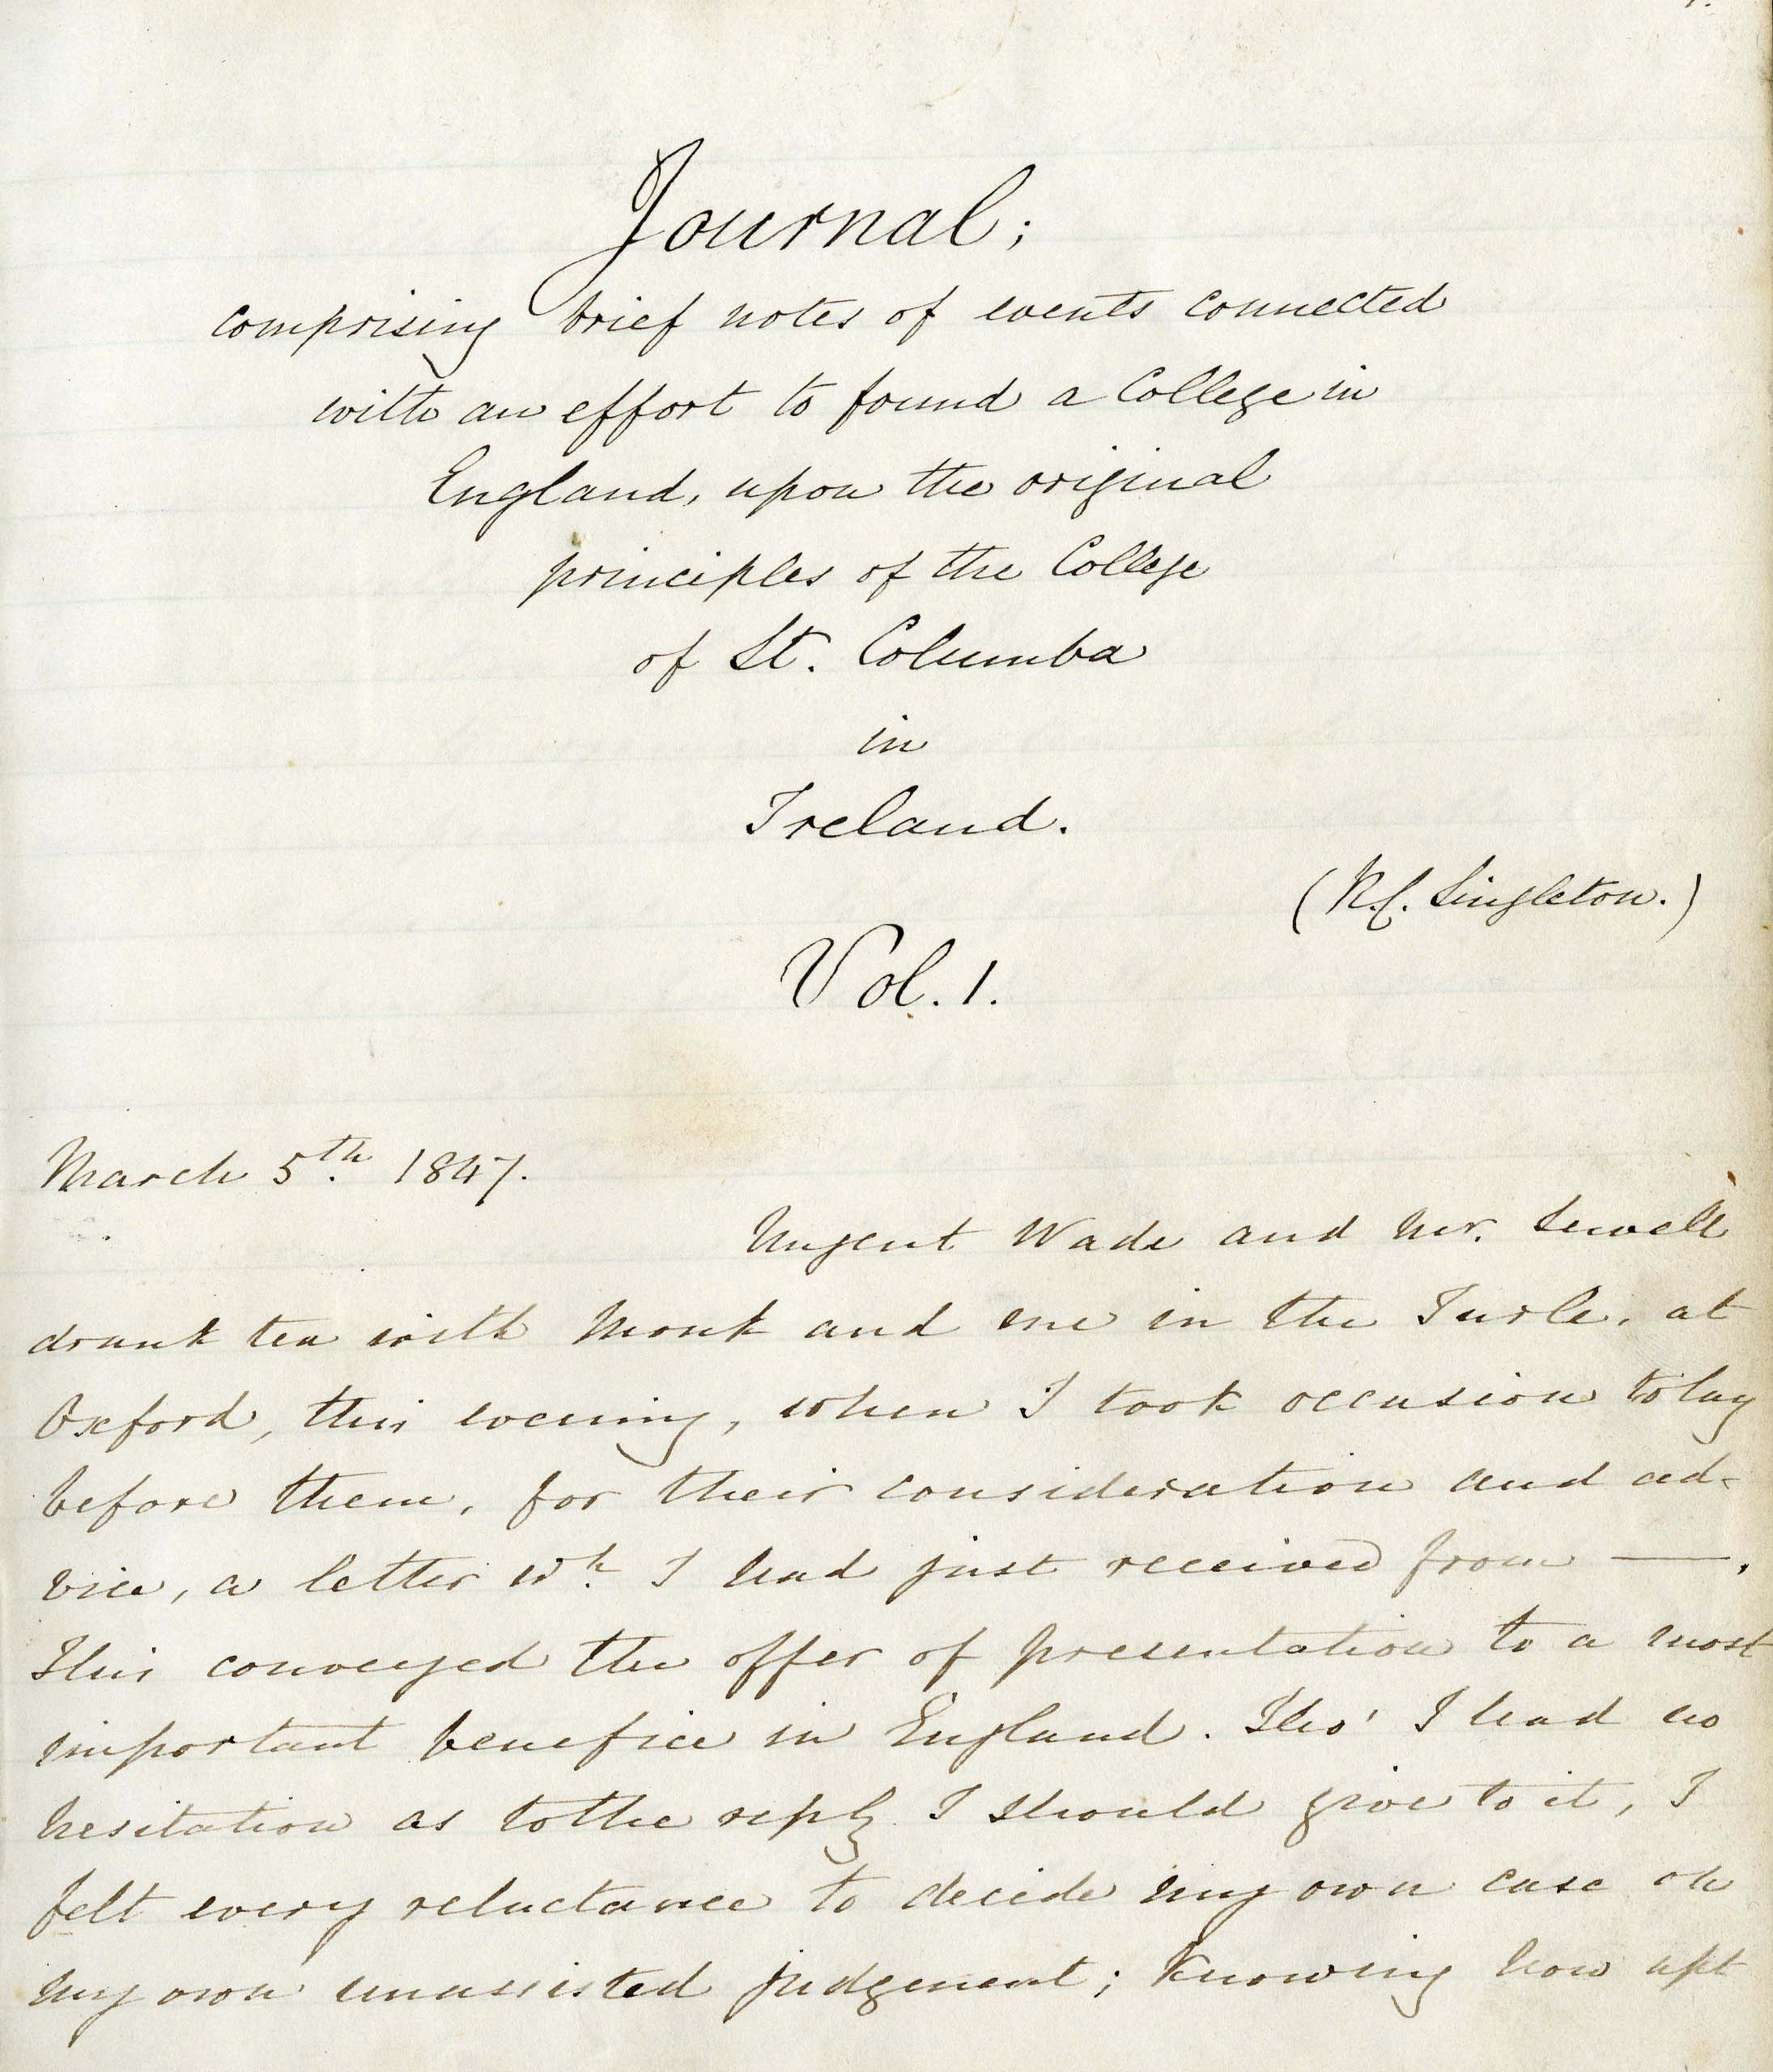 Journal;
comprising brief notes of events connected
with an effort to found a College in
England, upon the original
principles of the College
of St. Columba
in
Ireland.
(R.C. Singleton.)
Vol. 1.
March 5th. 1847.
Nugent Wade and Mr. Sewell
drank tea with Monk and me in the Turle, at
Oxford, this evening, when I took occasion to lay
before them, for their consideration and ad-
vice, a letter wh. I had just received from ——.
This conveyed the offer of presentation to a most
important benefice in England. Tho' I had no
hesitation as to the reply I should give to it, I
felt every reluctance to decide my own case on
my own unassisted judgement; knowing how apt